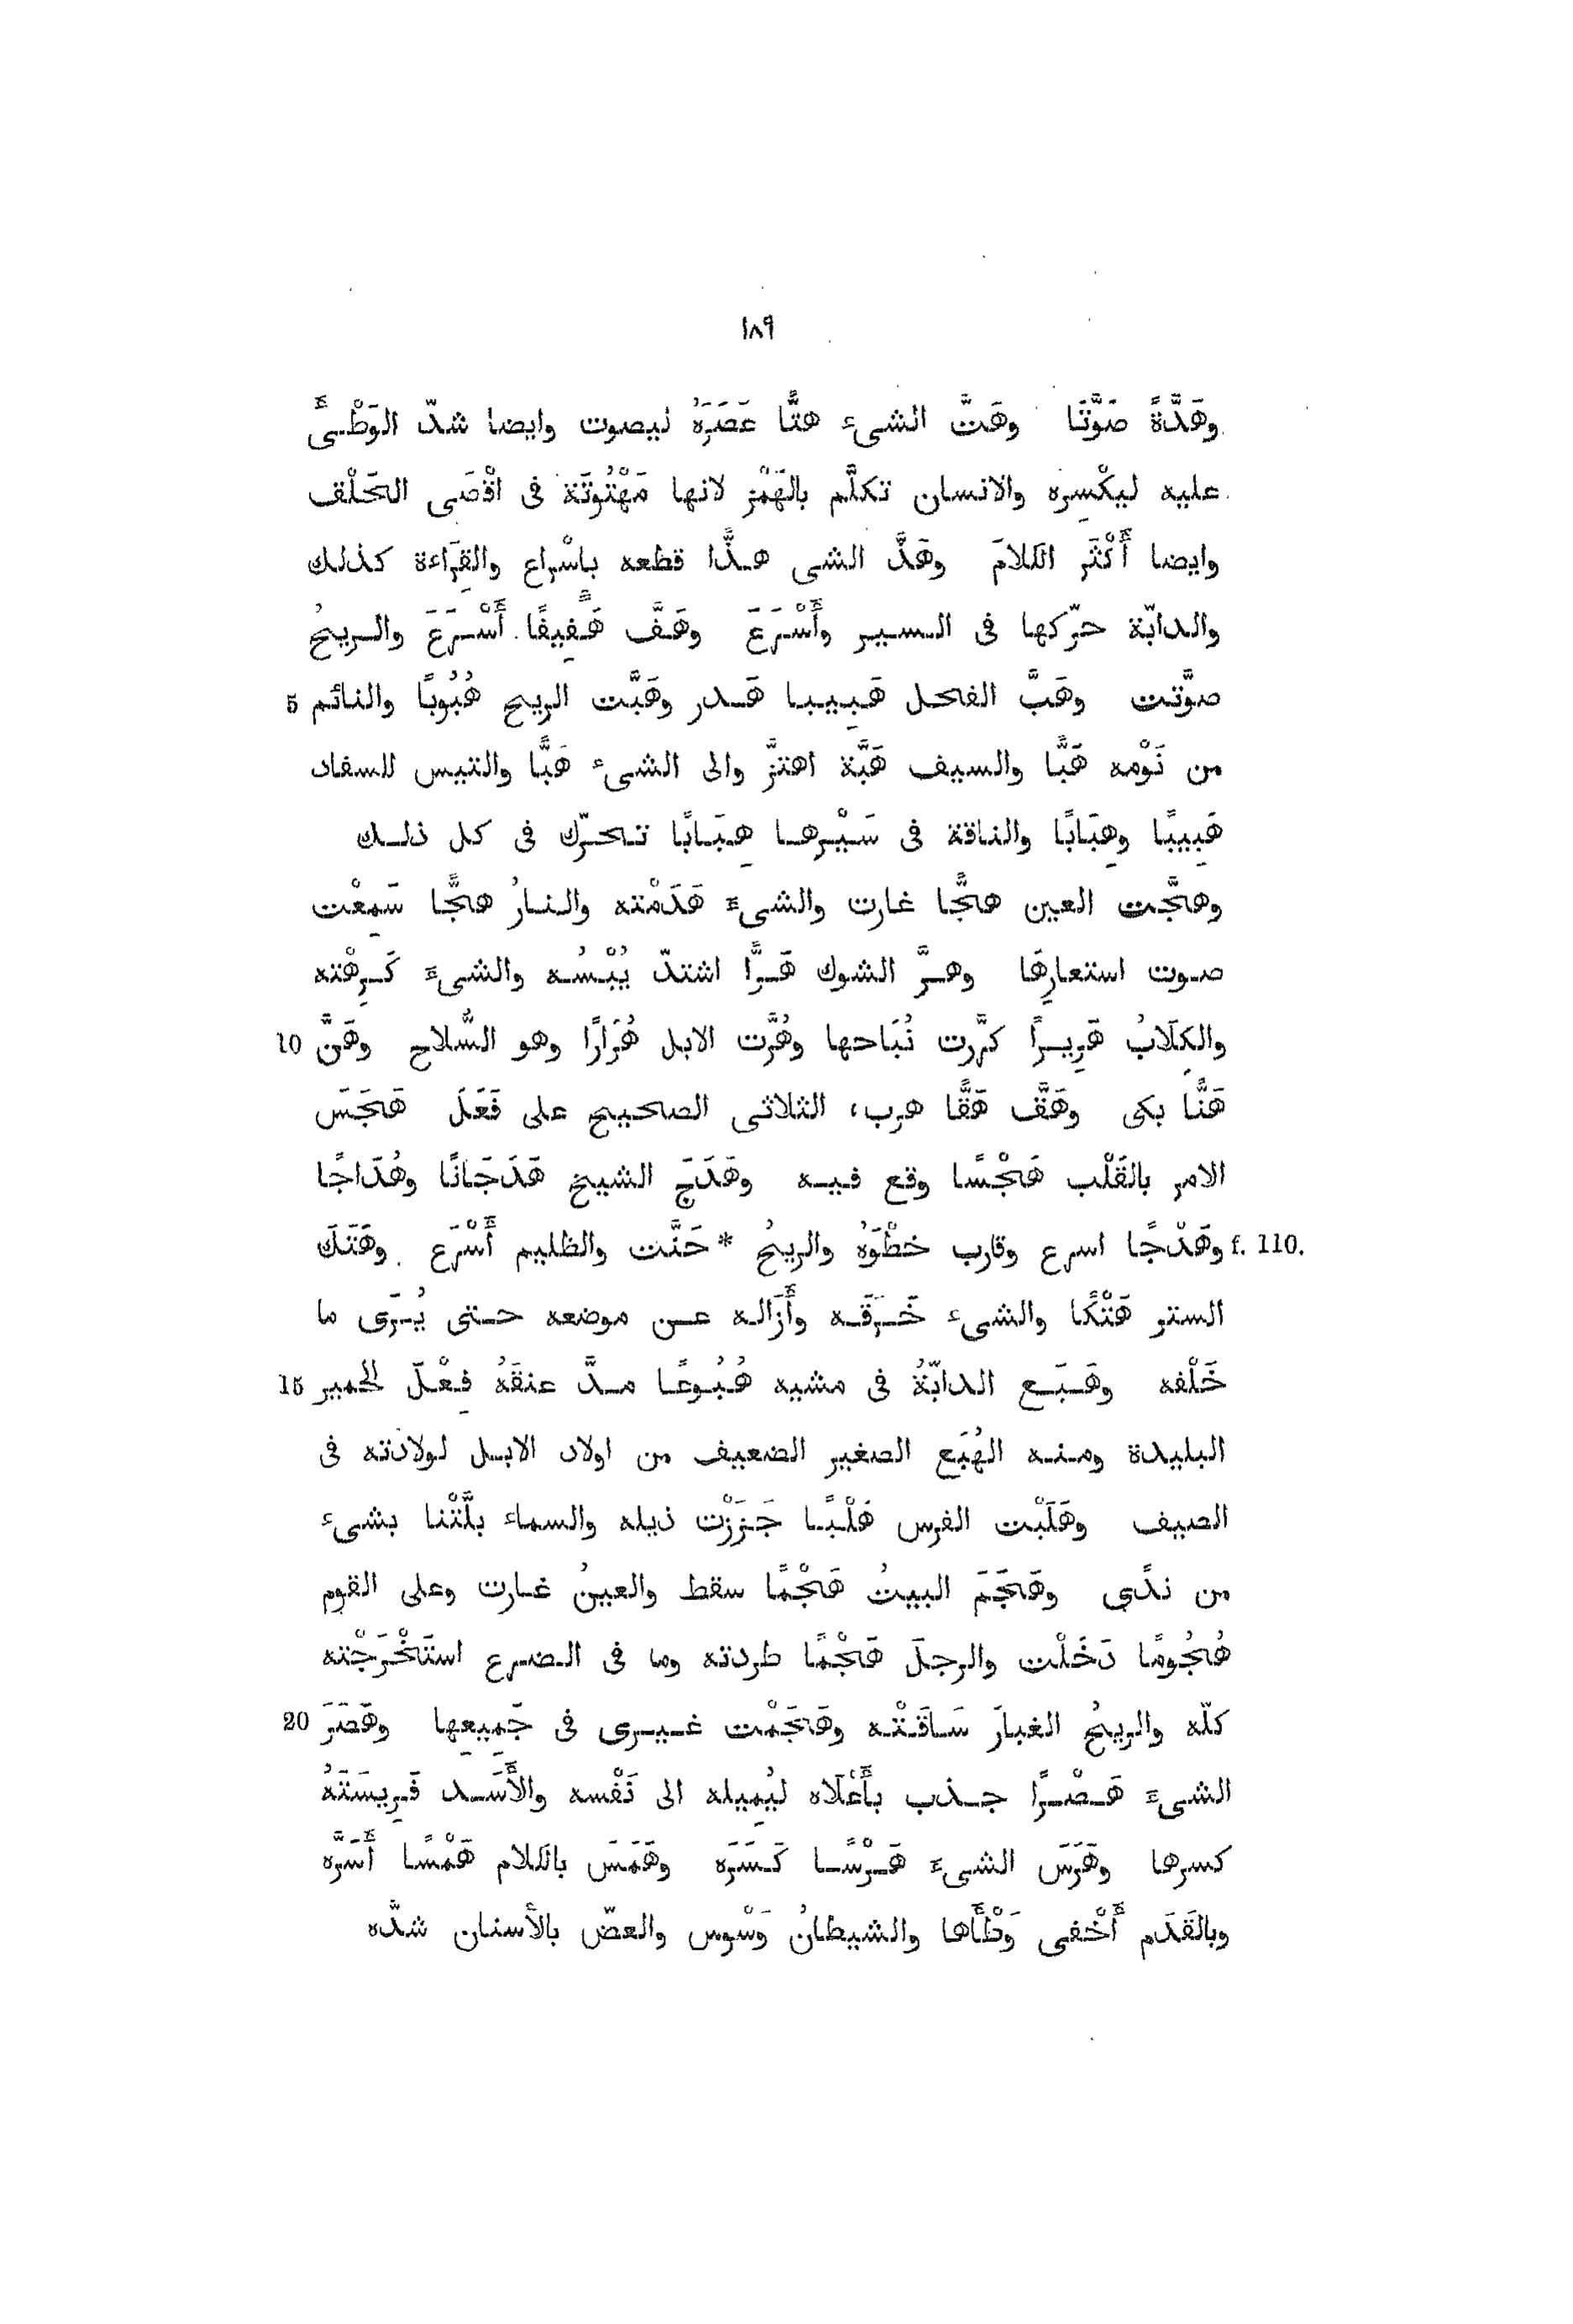 ١٨٩
وهَدَّةً صَوَّتَا وهَتَّ الشىء هتًّا عَصَرَهُ ليصوت وايضا شدّ الوَطْـىَٔ
عليه ليكْسِره والانسان تكلَّم بالهَمْز لانها مَهْتُوتَة فى اقْصَى الحَلْق
وايضا أَكْثَر الكلامَ وهَذَّ الشى هـذًّا قطعه باسْراع والقِرَاءة كذلك
والدابّة حرّكها فى السير وأَسْرَعَ وهَفَّ هَفِيفًا أَسْرَعَ والريحُ
صوَّتت وهَبَّ الفحل هَبِيبا هَدر وهَبَّت الريح هُبُوبًا والنائم 5
من نَوْمه هَبًّا والسيف هَبَّة اهتزَّ والى الشىء هَبًّا والتيس للسفاد
هَبِيبًا وهِبَابًا والناقة فى سَيْرها هِبَابًا تحرّك فى كل ذلك
وهجَّت العين هجًّا غارت والشىءَ هَدَمْته والنارُ هجًّا سَمِعْت
صوت استعارِهَا وهرَّ الشوك هَرًّا اشتدّ يُبْسُه والشىءَ كَرِهْته
والكِلَابُ هَرِيرًا كرَّرت نُبَاحها وهُرَّت الابل هُرَارًا وهو السُّلاح وهَنَّ 10
هَنًّا بكى وهَقَّ هَقًّا هرب، الثلاثى الصحيح على فَعَلَ هَجَسَ
الامر بالقَلْب هَجْسًا وقع فيه وهَدَجَ الشيخ هَدَجَانًا وهُدَاجًا
وهَدْجًا اسرع وقارب خطْوَهُ والريحُ * حَنَّت والظليم أَسْرَع وهَتَكَ f. 110.
الستر هَتْكًا والشىء خَرَقَه وأَزَاله عن موضعه حتى يُرَى ما
خَلْفه وهَبَع الدابّةُ فى مشيه هُبُوعًا مدَّ عنقَهُ فِعْلَ الحمير 15
البليدة ومنه الهُبَع الصغير الضعيف من اولاد الابل لولادته فى
الصيف وهَلَبْت الفرس هَلْبًا جَزَزْت ذيله والسماء بلَّتْنا بشىء
من ندًى وهَجَمَ البيتُ هَجْمًا سقط والعينُ غارت وعلى القوم
هُجُومًا دَخَلْت والرجلَ هَجْمًا طردته وما فى الضرع استَخْرَجْته
كلّه والريحُ الغبارَ سَاقَتْه وهَجَمْت غيرى فى جَمِيعِها وهَصَرَ 20
الشىءَ هَصْرًا جذب بأَعْلَاه ليُمِيله الى نَفْسه والأَسَد فَرِيسَتَهُ
كسرها وهَرَسَ الشىءَ هَرْسًا كَسَرَه وهَمَسَ بالكلام هَمْسًا أَسَرَّه
وبالقَدَم أَخْفى وَطْأَها والشيطانُ وَسْوس والعضّ بالأسنان شدّه